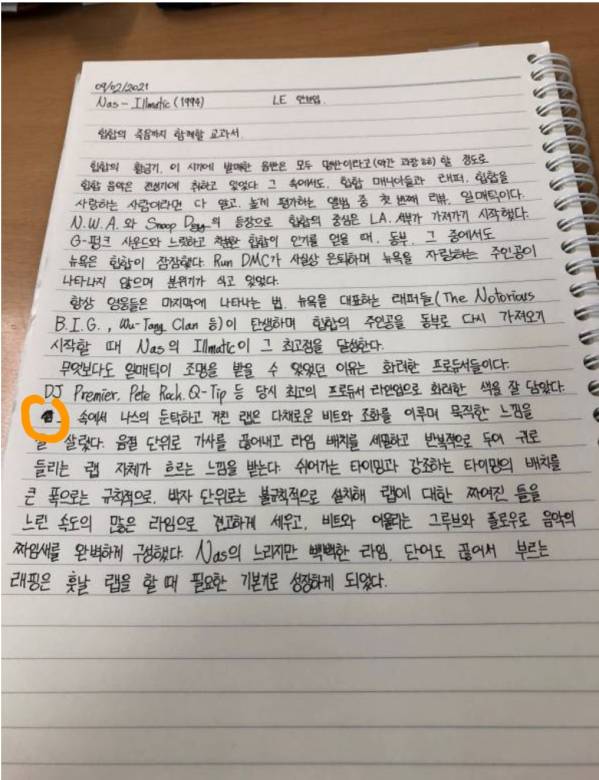 09/02/2021
Nas - Illmatic (1994) LE 안현업
힙합의 죽음까지 함께할 교과서
힙합의 황금기. 이 시기에 발매한 음반은 모두 명반이라고(약간 과장 보태) 할 정도로
힙합 음악은 전성기에 취하고 있었다. 그 속에서도, 힙합 매니아들과 래퍼, 힙합을
사랑하는 사람이라면 다 알고, 높게 평가하는 앨범 중 첫 번째 리뷰, 일매틱이다.
N.W.A.와 Snoop Dogg의 등장으로 힙합의 중심은 LA, 서부가 가져가기 시작했다.
G-펑크 사운드와 느릿하고 차분한 힙합이 인기를 얻을 때, 동부, 그 중에서도
뉴욕은 힙합이 잠잠했다. Run DMC가 사실상 은퇴하며 뉴욕을 자랑하는 주인공이
나타나지 않으며 분위기가 식고 있었다.
항상 영웅들은 마지막에 나타나는 법. 뉴욕을 대표하는 래퍼들(The Notorious
B.I.G., Wu-Tang Clan 등)이 탄생하며 힙합의 주인공을 동부로 다시 가져오기
시작할 때 Nas의 Illmatic이 그 최고점을 달성한다.
무엇보다도 일매틱이 조명을 받을 수 있었던 이유는 화려한 프로듀서들이다.
DJ Premier, Pete Rock, Q-Tip 등 당시 최고의 프로듀서 라인업으로 화려한 색을 잘 담았다.
속에서 나스의 둔탁하고 거친 랩은 다채로운 비트와 조화를 이루며 묵직한 느낌을
잘 살렸다. 음절 단위로 가사를 끊어내고 라임 배치를 세밀하고 반복적으로 두어 귀로
들리는 랩 자체가 흐르는 느낌을 받는다. 쉬어가는 타이밍과 강조하는 타이밍의 배치를
큰 폭으로는 규칙적으로, 박자 단위로는 불규칙적으로 설치해 랩에 대한 짜여진 틀을
느린 속도의 많은 라임으로 견고하게 세우고, 비트와 어울리는 그루브와 플로우로 음악의
짜임새를 완벽하게 구성했다. Nas의 느리지만 빽빽한 라임, 단어도 끊어서 부르는
래핑은 훗날 랩을 할 때 필요한 기본기로 성장하게 되었다.